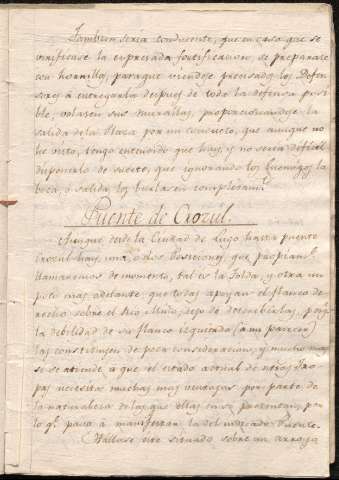 Tambien seria conducente, que en caso que se
verificase la expresada fortificacion, se preparase
con hornillos, paraque viendose precisados los Defen
sores à entregarla despues de toda la defensa posi
ble, volasen sus murallas, proporcionandose la
salida de la Plaza por un conducto, que aunque no
he visto, tengo entendido que hay, y no seria dificil
disponerlo de suerte, que ignorando los Enemigos la
boca, ó salida, los burlasen completam.te
Puente de Crozul.
Aunque desde la Ciudad de Lugo hasta puente
crozul hay una, ò dos Posiciones, que propiam.te
llamaremos de momento, tal es la Tolda, y otra un
poco mas adelante, que todas apoyan el flanco de
recho sobre el Rio Miño, dejo de describirlas, porq.e
la debilidad de su flanco izquierdo (à mi parecer)
las constituyen de poca consideracion, y mucho mas
si se atiende à que el estado actual de nras Tro
pas necesita muchas mas ventajas por parte de
la naturaleza de las que ellas nos presentan, por
lo q.e paso à manifestar la del mencionado Puente.
Hállase este situado sobre un arroyo